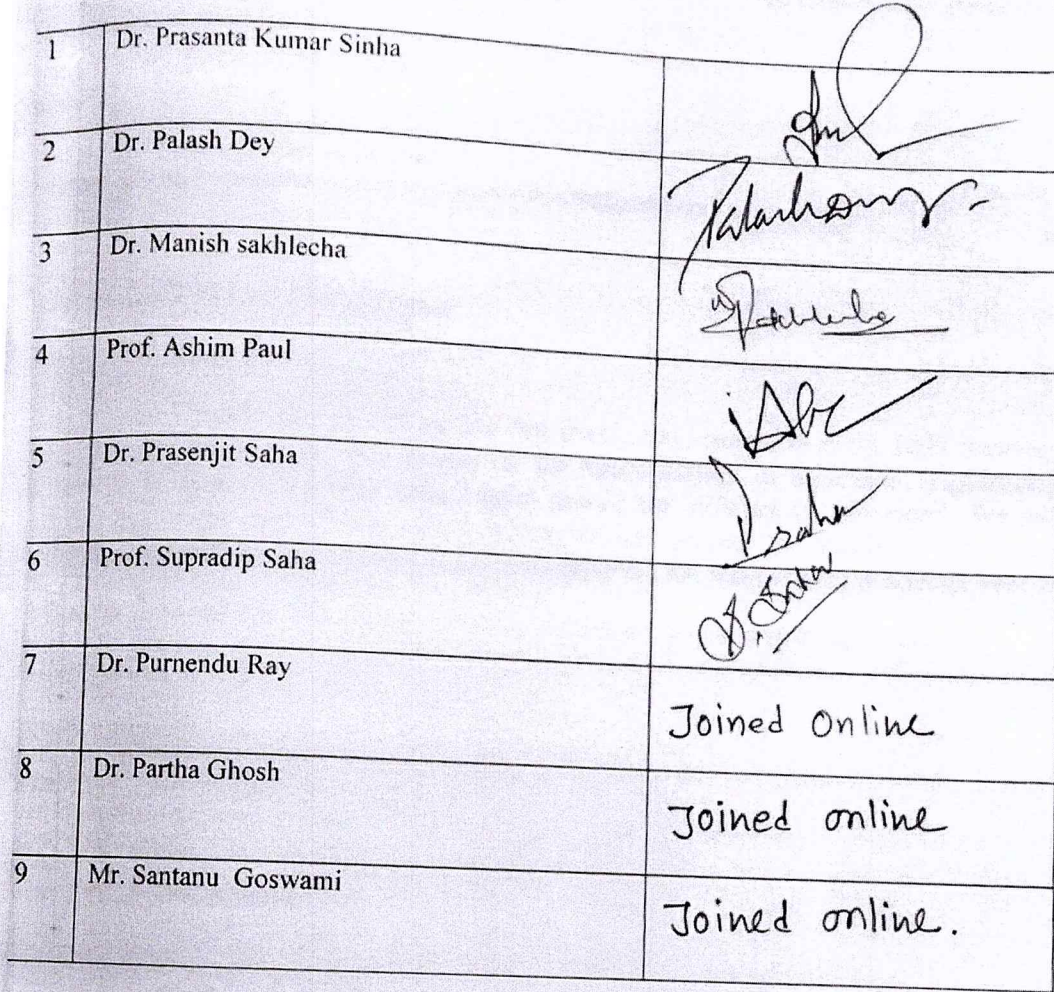 1 Dr. Prasanta Kumar Sinha
2 Dr. Palash Dey
3 Dr. Manish sakhlecha
4 Prof. Ashim Paul
5 Dr. Prasenjit Saha
P saha
6 Prof. Supradip Saha
S. Saha
7 Dr. Purnendu Ray
Joined Online
8 Dr. Partha Ghosh
Joined online
9 Mr. Santanu Goswami
Joined online.